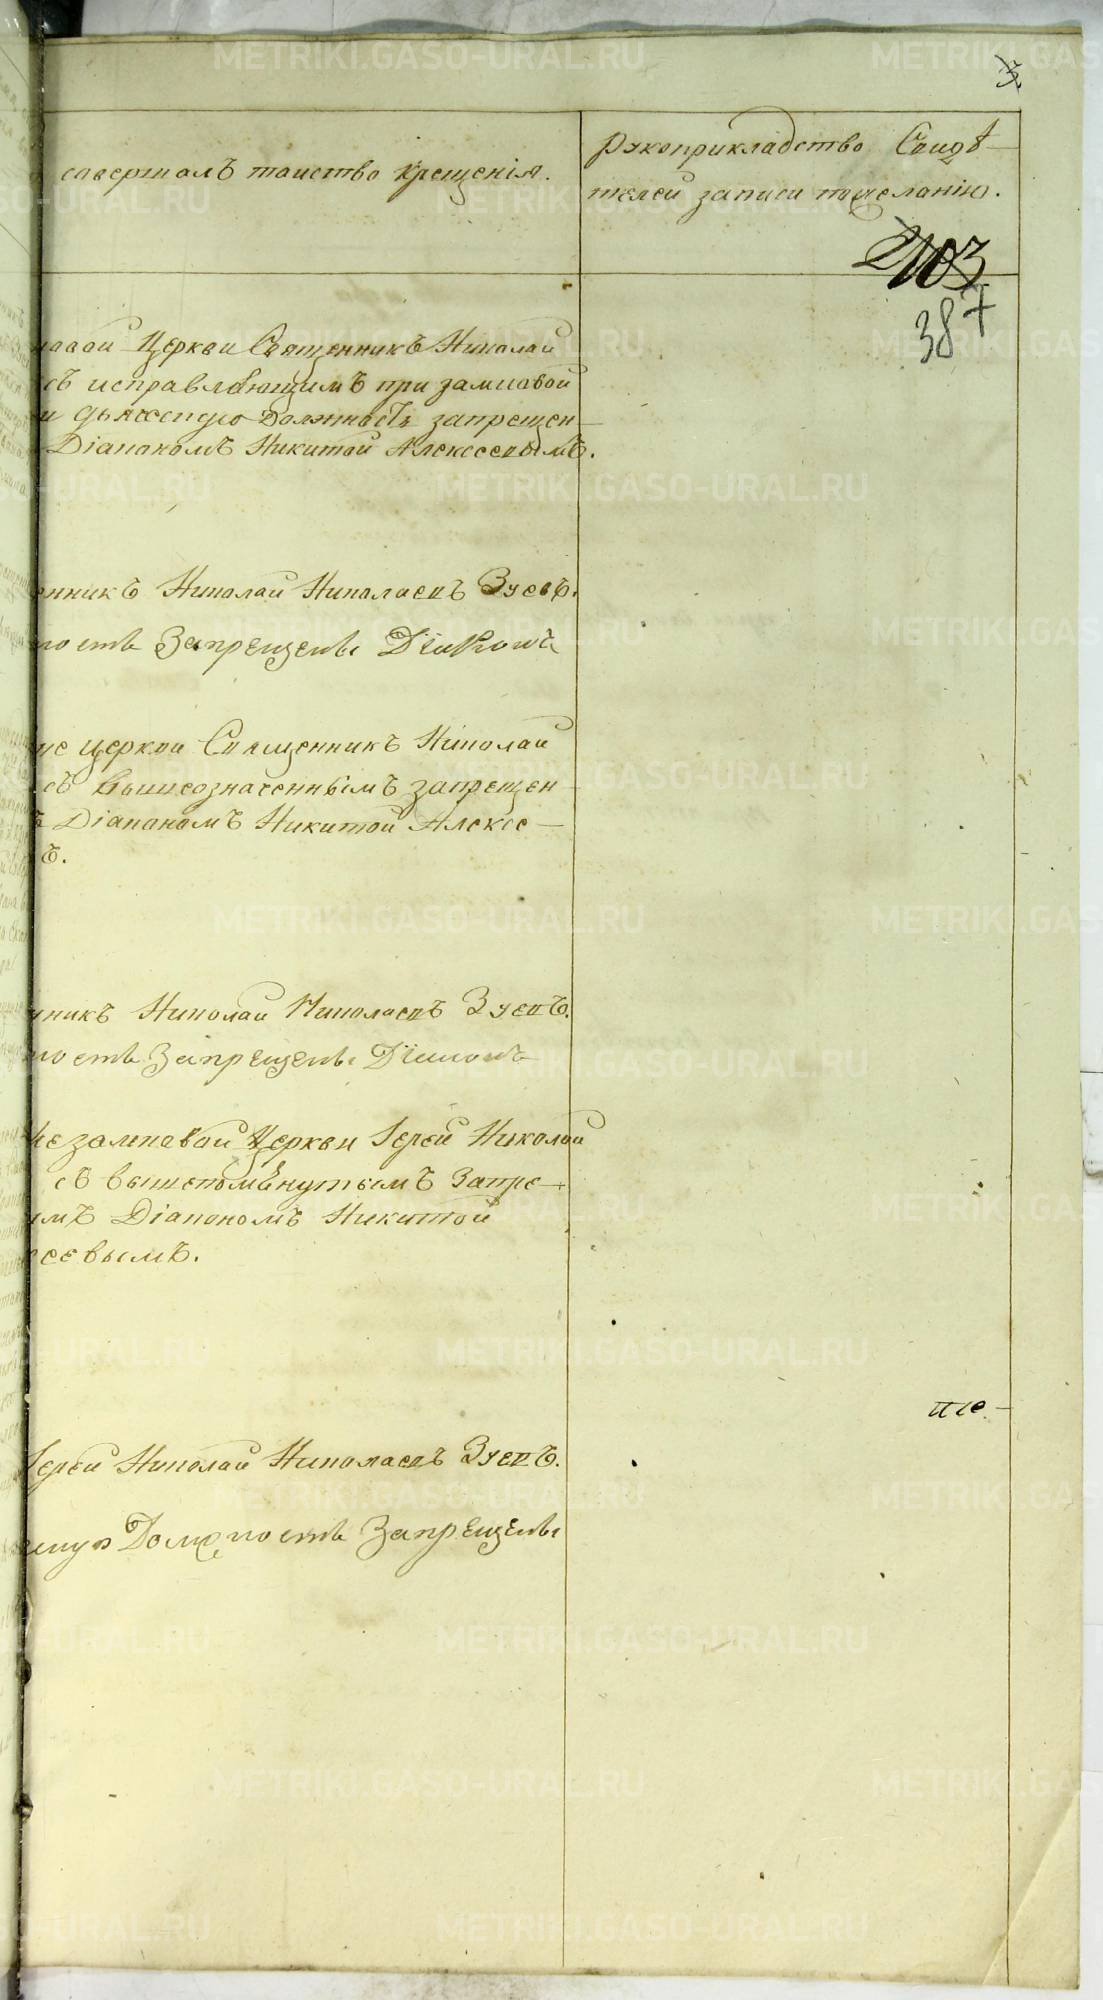 3
совершалъ таинство крещенія.
Рукоприкладство Свидѣ-
телей записи по желанію.
103
387
Церкви Священникъ Николай
съ исправляющимъ при замковой
дьяческую должность запрещен-
Діакономъ Никитой Алексеевымъ.
нникъ Николай Николаевъ Зуевъ.
ность Запрещены Діаконъ
Церкви Священникъ Николай
съ вышеозначеннымъ запрещен-
Діакономъ Никитой Алексе-
ъ.
нникъ Николай Николаевъ Зуевъ.
ность Запрещены Діаконъ
замковой Церкви Іерей Николай
съ вышепомянутымъ Запре-
ымъ Діакономъ Никитой
сеевымъ.
Іерей Николай Николаевъ Зуевъ.
Должность Запрещены
METRIKI.GASO-URAL.RU